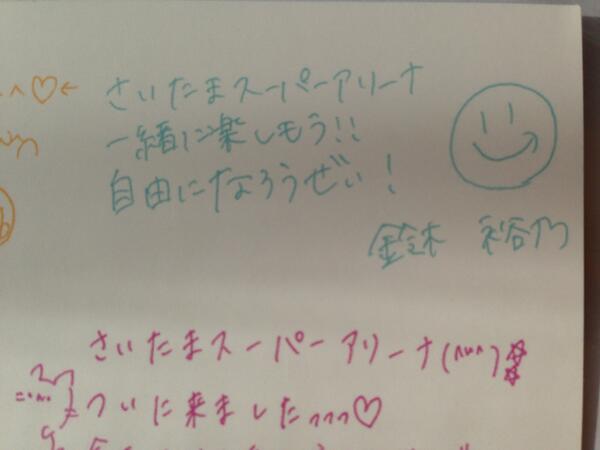 さいたまスーパーアリーナ
一緒に楽しもう!!
自由になろうぜい!
鈴木 裕乃
さいたまスーパーアリーナ(^ω^)☆☆
ついに来ました♡